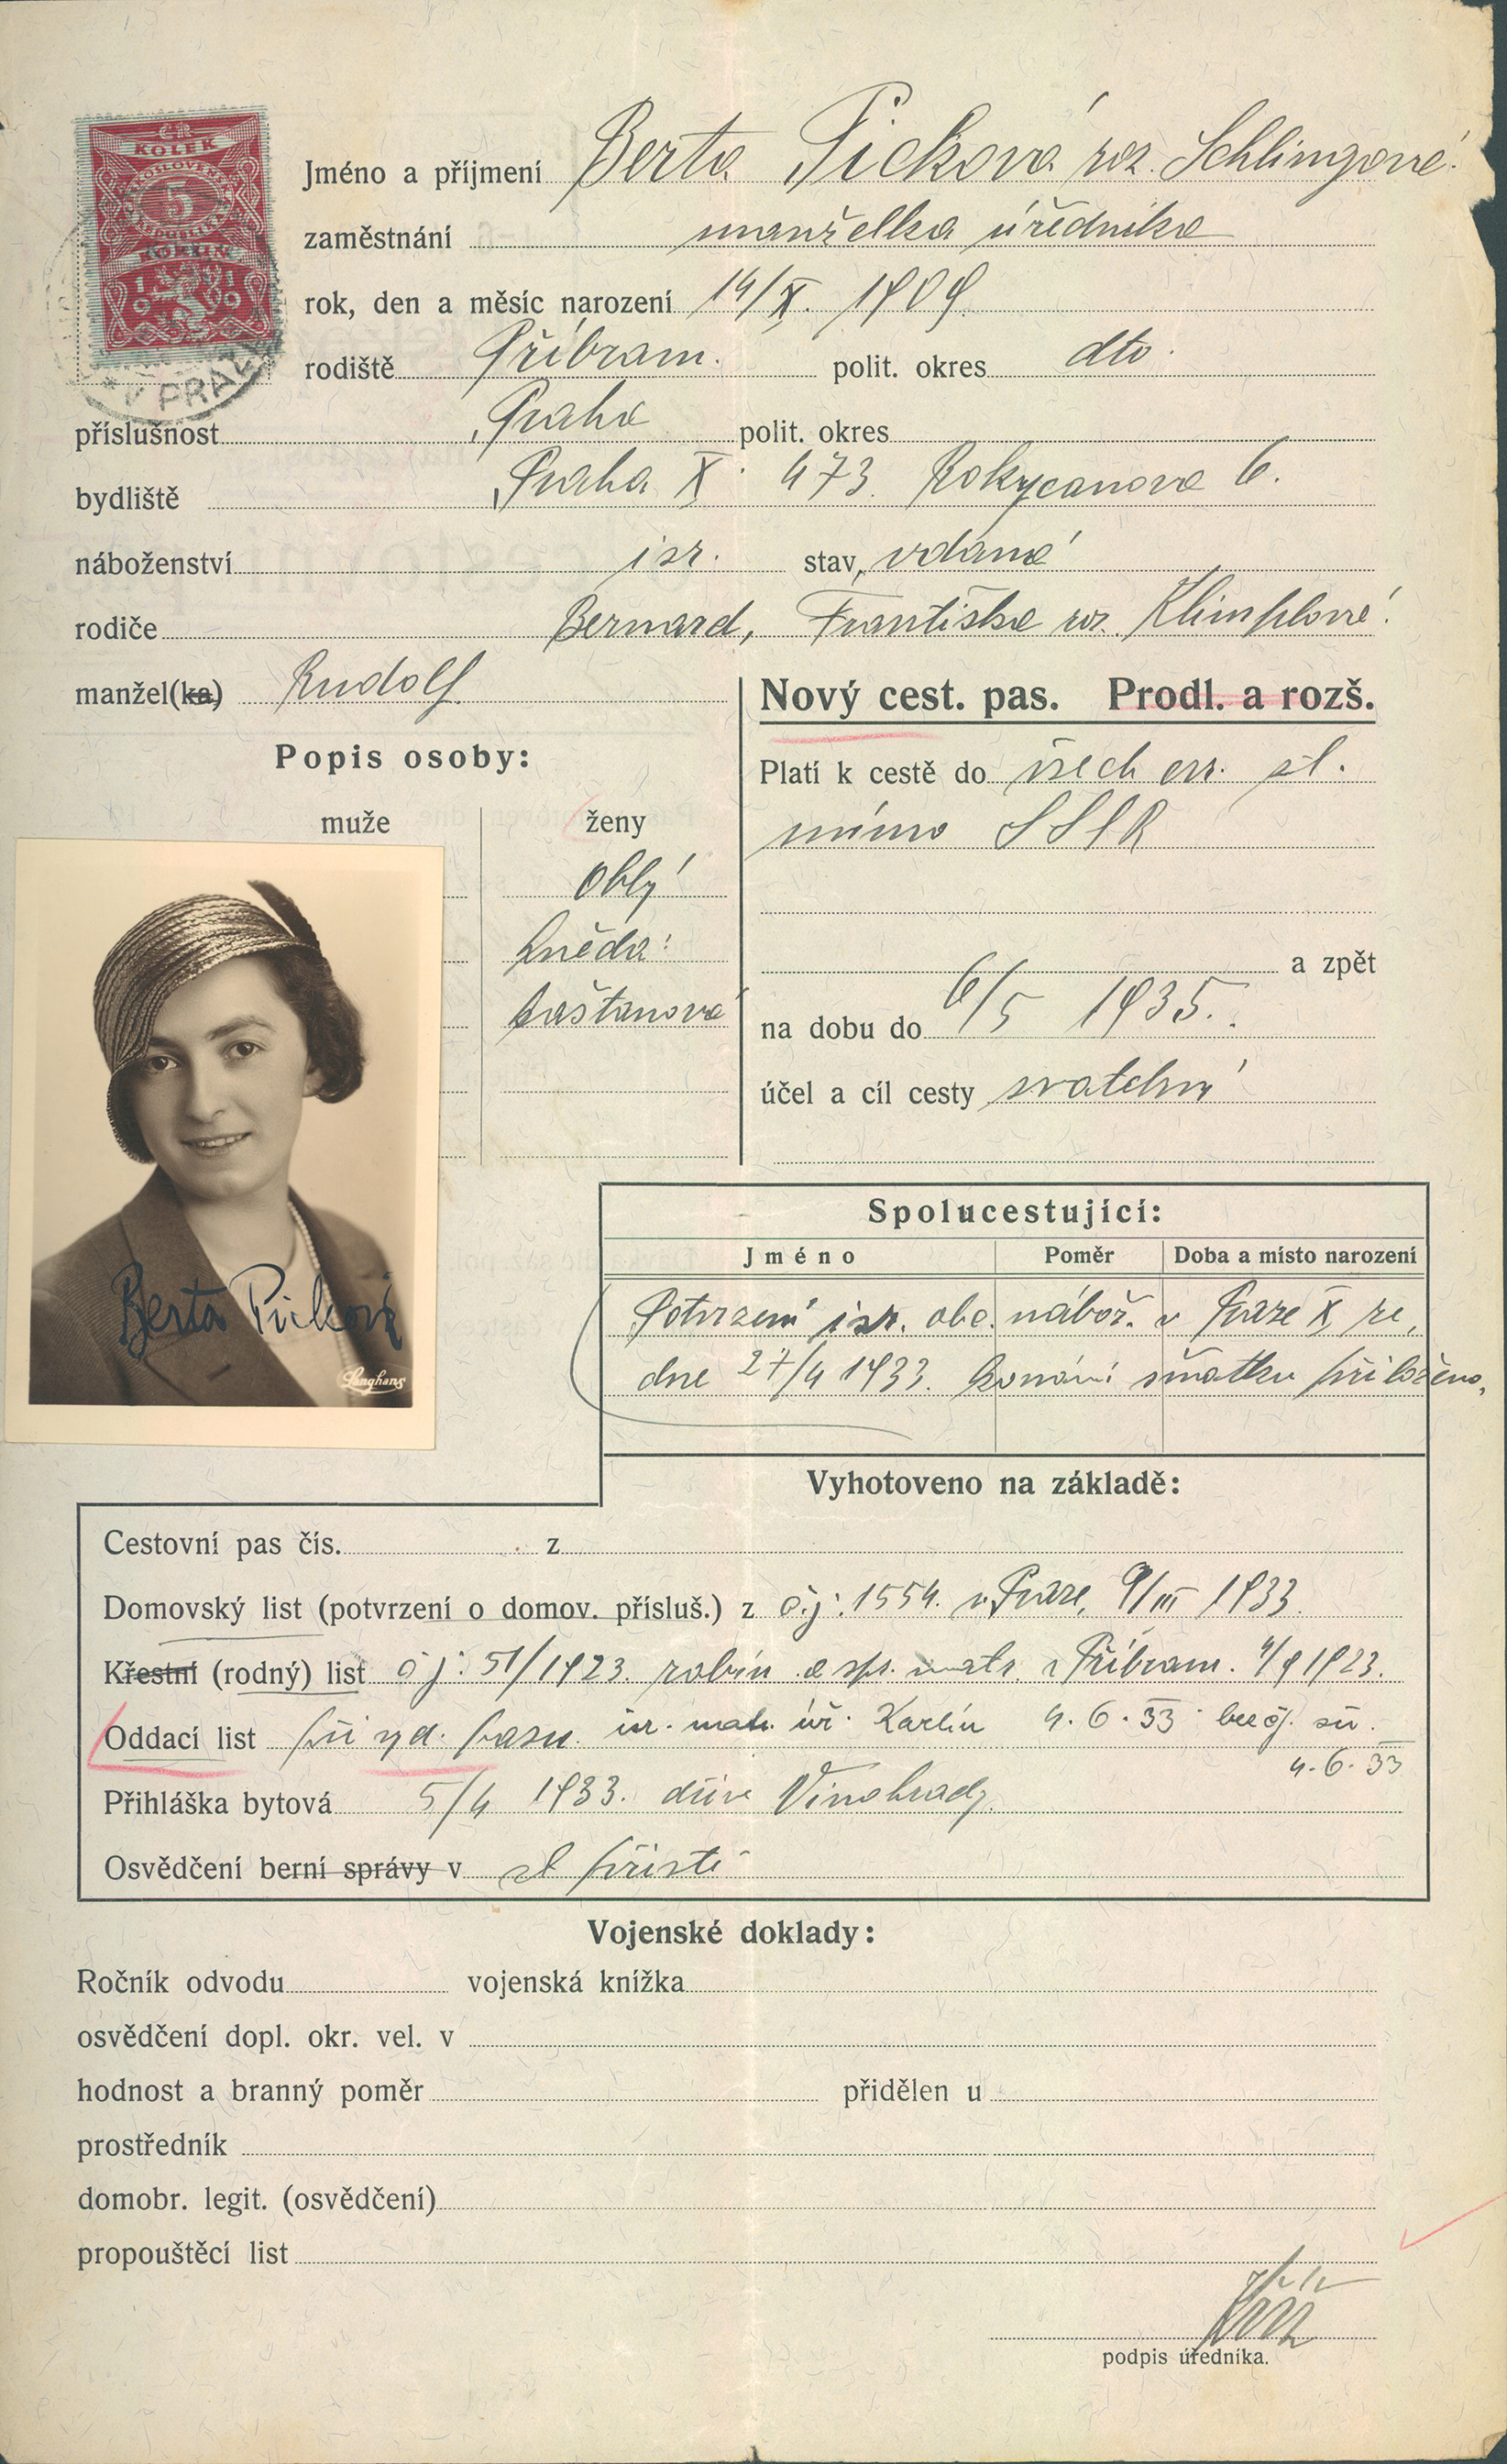 ČR
KOLEK
ČESKOSLOVENSKÁ
5
REPUBLIKA
KORUN
1919
PRA
Jméno a příjmení Berta Picková roz. Schlingová
zaměstnání manželka úředníka
rok, den a měsíc narození 14/X. 1909.
rodiště Příbram. polit. okres dto.
příslušnost Praha polit. okres
bydliště Praha X. 473. Rokycanova 6.
náboženství isr. stav vdaná
rodiče Bernard, Františka roz.
manžel(ka) Rudolf.
Nový cest. pas. Prodl. a rozš.
Popis osoby:
Platí k cestě do všech evr. st.
mimo SSSR
muže ženy
oblý
hnědá
kaštanové
a zpět
na dobu do 6/5 1935.
účel a cíl cesty svatební
Spolucestující:
Jméno Poměr Doba a místo narození
Potvrzení isr. obc. nábož. v Praze X, ze
dne 27/4 1933. konání sňatku přiloženo,
Berta Picková
Langhans
Vyhotoveno na základě:
Cestovní pas čís. z
Domovský list (potvrzení o domov. přísluš.) z č.j. 1554. v Praze, 9/III 1933.
Křestní (rodný) list čj: 51/1923. rabín. a spr. matr. v Příbram. 4/9 1923.
Oddací list při vyd. pasu. isr. matr. úř. Karlín 4.6.33 bez čj.
4.6.33
Přihláška bytová 5/4 1933. dříve Vinohrady.
Osvědčení berní správy v
Vojenské doklady:
Ročník odvodu vojenská knížka
osvědčení dopl. okr. vel. v
hodnost a branný poměr přidělen u
prostředník
domobr. legit. (osvědčení)
propouštěcí list
podpis úředníka.